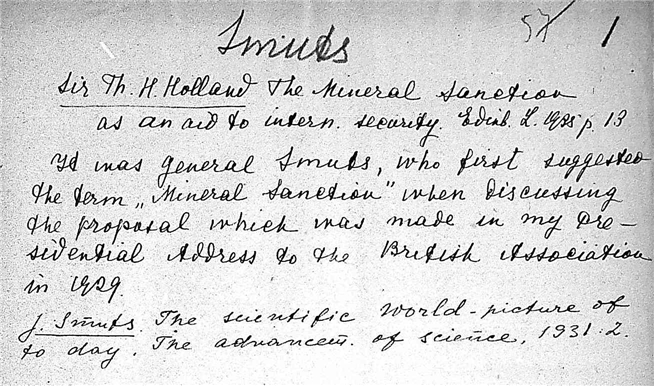 57 1
Smuts
Sir Th. H. Holland The Mineral Sanction
as an aid to intern. security. Edinb. L. 1935 p. 13
It was general Smuts, who first suggested
the term „Mineral Sanction" when discussing
the proposal which was made in my Pre-
sidential Address to the British Association
in 1929.
J. Smuts. The scientific world-picture of
to day. The advancem. of science. 1931.